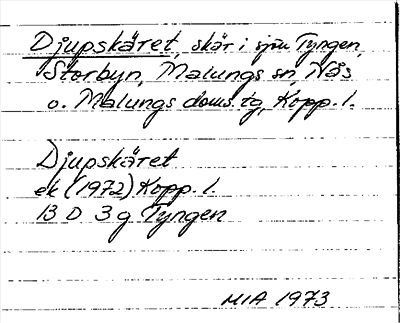 Djupskäret, skär i sjön Tyngen,
Storbyn, Malungs sn, Nås
o. Malungs doms.tg, Kopp. l.
Djupskäret
ek (1972) Kopp. l.
13 D 3 g Tyngen
MIA 1973